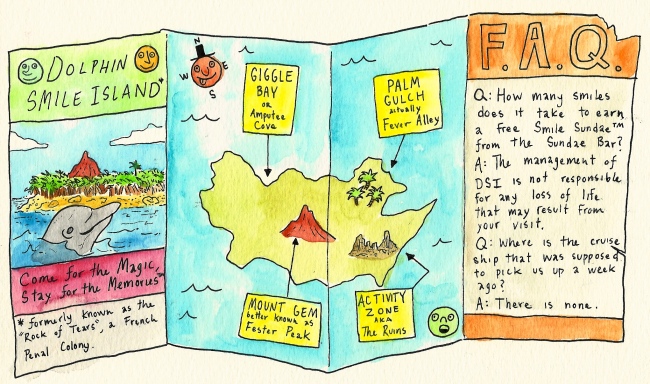 DOLPHIN
SMILE ISLAND*
Come for the Magic,
Stay for the Memories™
* formerly known as the
"Rock of Tears", a French
Penal Colony.
N
W E
S
GIGGLE
BAY
or
Amputee
Cove
PALM
GULCH
actually
Fever Alley
MOUNT GEM
better known as
Fester Peak
ACTIVITY
ZONE
AKA
The Ruins
F.A.Q.
Q: How many smiles
does it take to earn
a free Smile Sundae™
from the Sundae Bar?
A: The management of
DSI is not responsible
for any loss of life
that may result from
your visit.
Q: Where is the cruise
ship that was supposed
to pick us up a week
ago?
A: There is none.